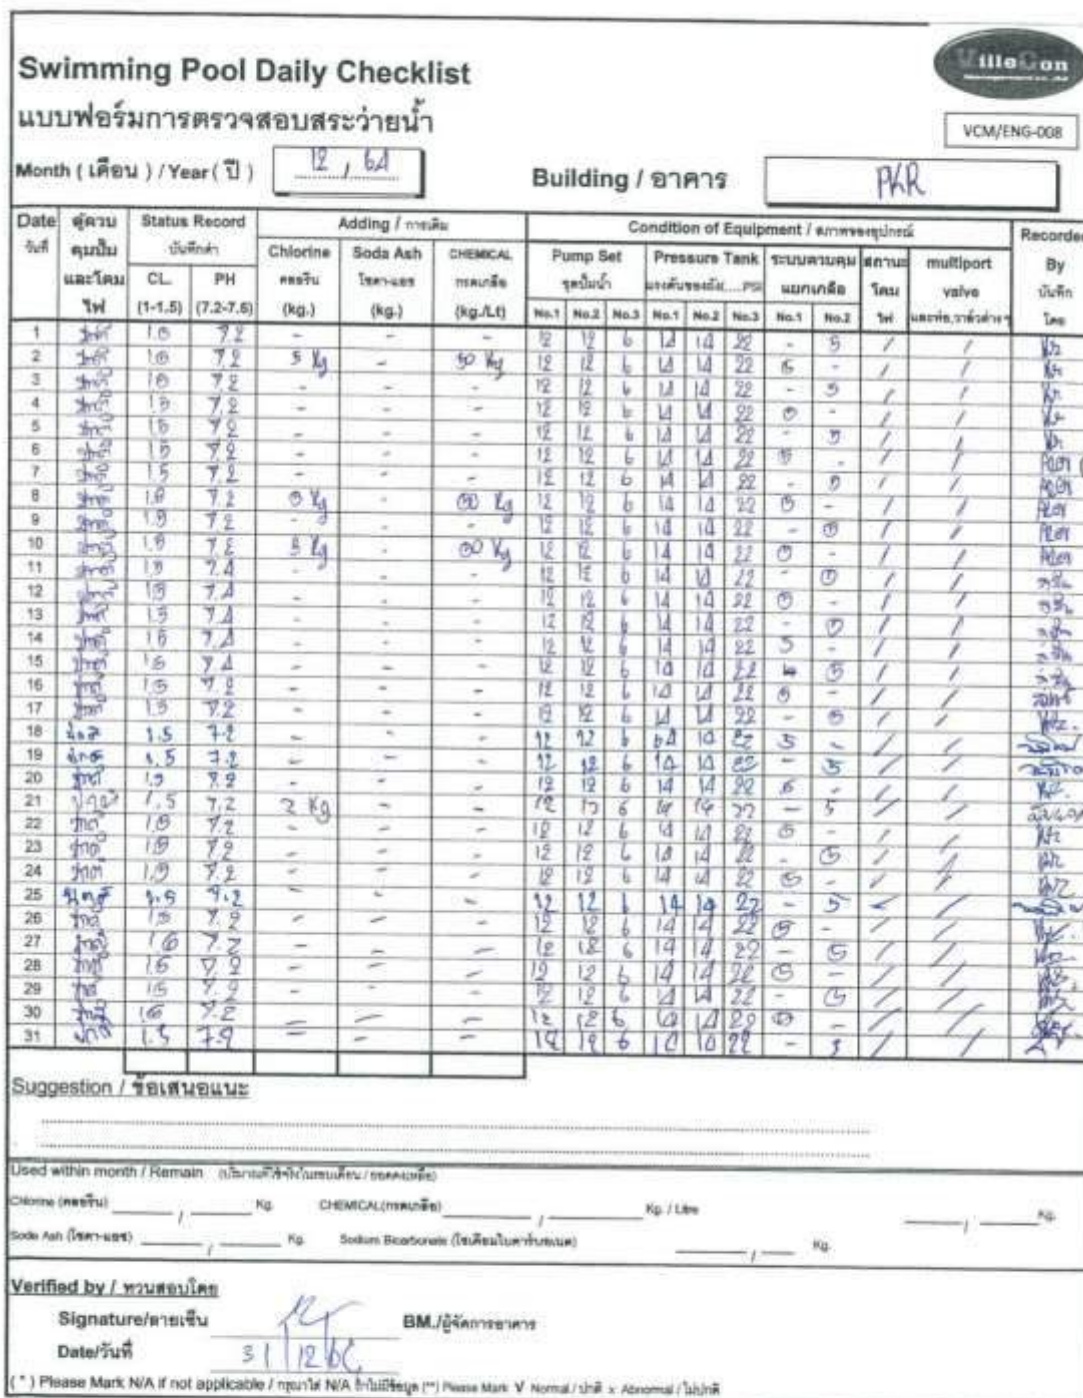 VilleCon
Swimming Pool Daily Checklist
แบบฟอร์มการตรวจสอบสระว่ายน้ำ
VCM/ENG-008
Month ( เดือน ) / Year ( ปี ) 12 / 64 Building / อาคาร PKR
Date วันที่ ตู้ควบคุมปั๊มและโคมไฟ Status Record บันทึกค่า Adding / การเติม Condition of Equipment / สภาพของอุปกรณ์ Recorded By บันทึกโดย
CL. (1-1.5) PH (7.2-7.6) Chlorine คลอรีน (kg.) Soda Ash โซดา-แอช (kg.) CHEMICAL กรดเกลือ (kg./Lt) Pump Set ชุดปั๊มน้ำ Pressure Tank แรงดันของถัง....PSI ระบบควบคุมแยกเกลือ สถานะโคมไฟ multiport valve และท่อ,วาล์วต่างๆ
No.1 No.2 No.3 No.1 No.2 No.3 No.1 No.2
1 ปกติ 1.5 7.2 - - - 12 12 6 14 14 22 - 5 / /
2 ปกติ 1.5 7.2 5 Kg - 50 Kg 12 12 6 14 14 22 5 - / /
3 ปกติ 1.5 7.2 - - - 12 12 6 14 14 22 - 5 / /
4 ปกติ 1.5 7.2 - - - 12 12 6 14 14 22 5 - / /
5 ปกติ 1.5 7.2 - - - 12 12 6 14 14 22 - 5 / /
6 ปกติ 1.5 7.2 - - - 12 12 6 14 14 22 5 - / /
7 ปกติ 1.5 7.2 - - - 12 12 6 14 14 22 - 5 / /
8 ปกติ 1.5 7.2 5 Kg - 50 Kg 12 12 6 14 14 22 5 - / /
9 ปกติ 1.5 7.2 - - - 12 12 6 14 14 22 - 5 / /
10 ปกติ 1.5 7.2 5 Kg - 50 Kg 12 12 6 14 14 22 5 - / /
11 ปกติ 1.5 7.4 - - - 12 12 6 14 14 22 - 5 / /
12 ปกติ 1.5 7.4 - - - 12 12 6 14 14 22 5 - / /
13 ปกติ 1.5 7.4 - - - 12 12 6 14 14 22 - 5 / /
14 ปกติ 1.5 7.4 - - - 12 12 6 14 14 22 5 - / /
15 ปกติ 1.5 7.4 - - - 12 12 6 14 14 22 - 5 / /
16 ปกติ 1.5 7.2 - - - 12 12 6 14 14 22 5 - / /
17 ปกติ 1.5 7.2 - - - 12 12 6 14 14 22 - 5 / /
18 ปกติ 1.5 7.2 - - - 12 12 6 14 14 22 5 - / /
19 ปกติ 1.5 7.2 - - - 12 12 6 14 14 22 - 5 / /
20 ปกติ 1.5 7.2 - - - 12 12 6 14 14 22 5 - / /
21 ปกติ 1.5 7.2 2 Kg - - 12 12 6 14 14 22 - 5 / /
22 ปกติ 1.5 7.2 - - - 12 12 6 14 14 22 5 - / /
23 ปกติ 1.5 7.2 - - - 12 12 6 14 14 22 - 5 / /
24 ปกติ 1.5 7.2 - - - 12 12 6 14 14 22 5 - / /
25 ปกติ 1.5 7.2 - - - 12 12 6 14 14 22 - 5 / /
26 ปกติ 1.5 7.2 - - - 12 12 6 14 14 22 5 - / /
27 ปกติ 1.5 7.2 - - - 12 12 6 14 14 22 - 5 / /
28 ปกติ 1.5 7.2 - - - 12 12 6 14 14 22 5 - / /
29 ปกติ 1.5 7.2 - - - 12 12 6 14 14 22 - 5 / /
30 ปกติ 1.5 7.2 - - - 12 12 6 14 14 22 5 - / /
31 ปกติ 1.5 7.2 - - - 12 12 6 14 14 22 - 5 / /
Suggestion / ข้อเสนอแนะ
Used within month / Remain (ปริมาณที่ใช้จริงในรอบเดือน / ยอดคงเหลือ)
Chlorine (คลอรีน) / Kg. CHEMICAL(กรดเกลือ) / Kg. / Litre / Kg.
Soda Ash (โซดา-แอช) / Kg. Sodium Bicarbonate (โซเดียมไบคาร์บอเนต) / Kg.
Verified by / ทวนสอบโดย
Signature/ลายเซ็น BM./ผู้จัดการอาคาร
Date/วันที่ 31 12
( * ) Please Mark N/A if not applicable / กรุณาใส่ N/A ถ้าไม่มีข้อมูล (**) Please Mark V Normal / ปกติ x Abnormal / ไม่ปกติ